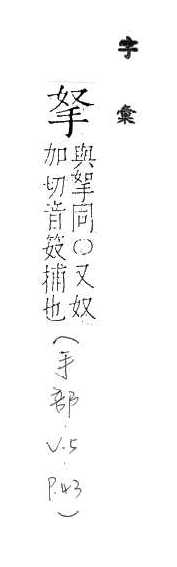 字彙
拏
與挐同○又奴
加切音笯捕也
(手部.V.5.P.43)